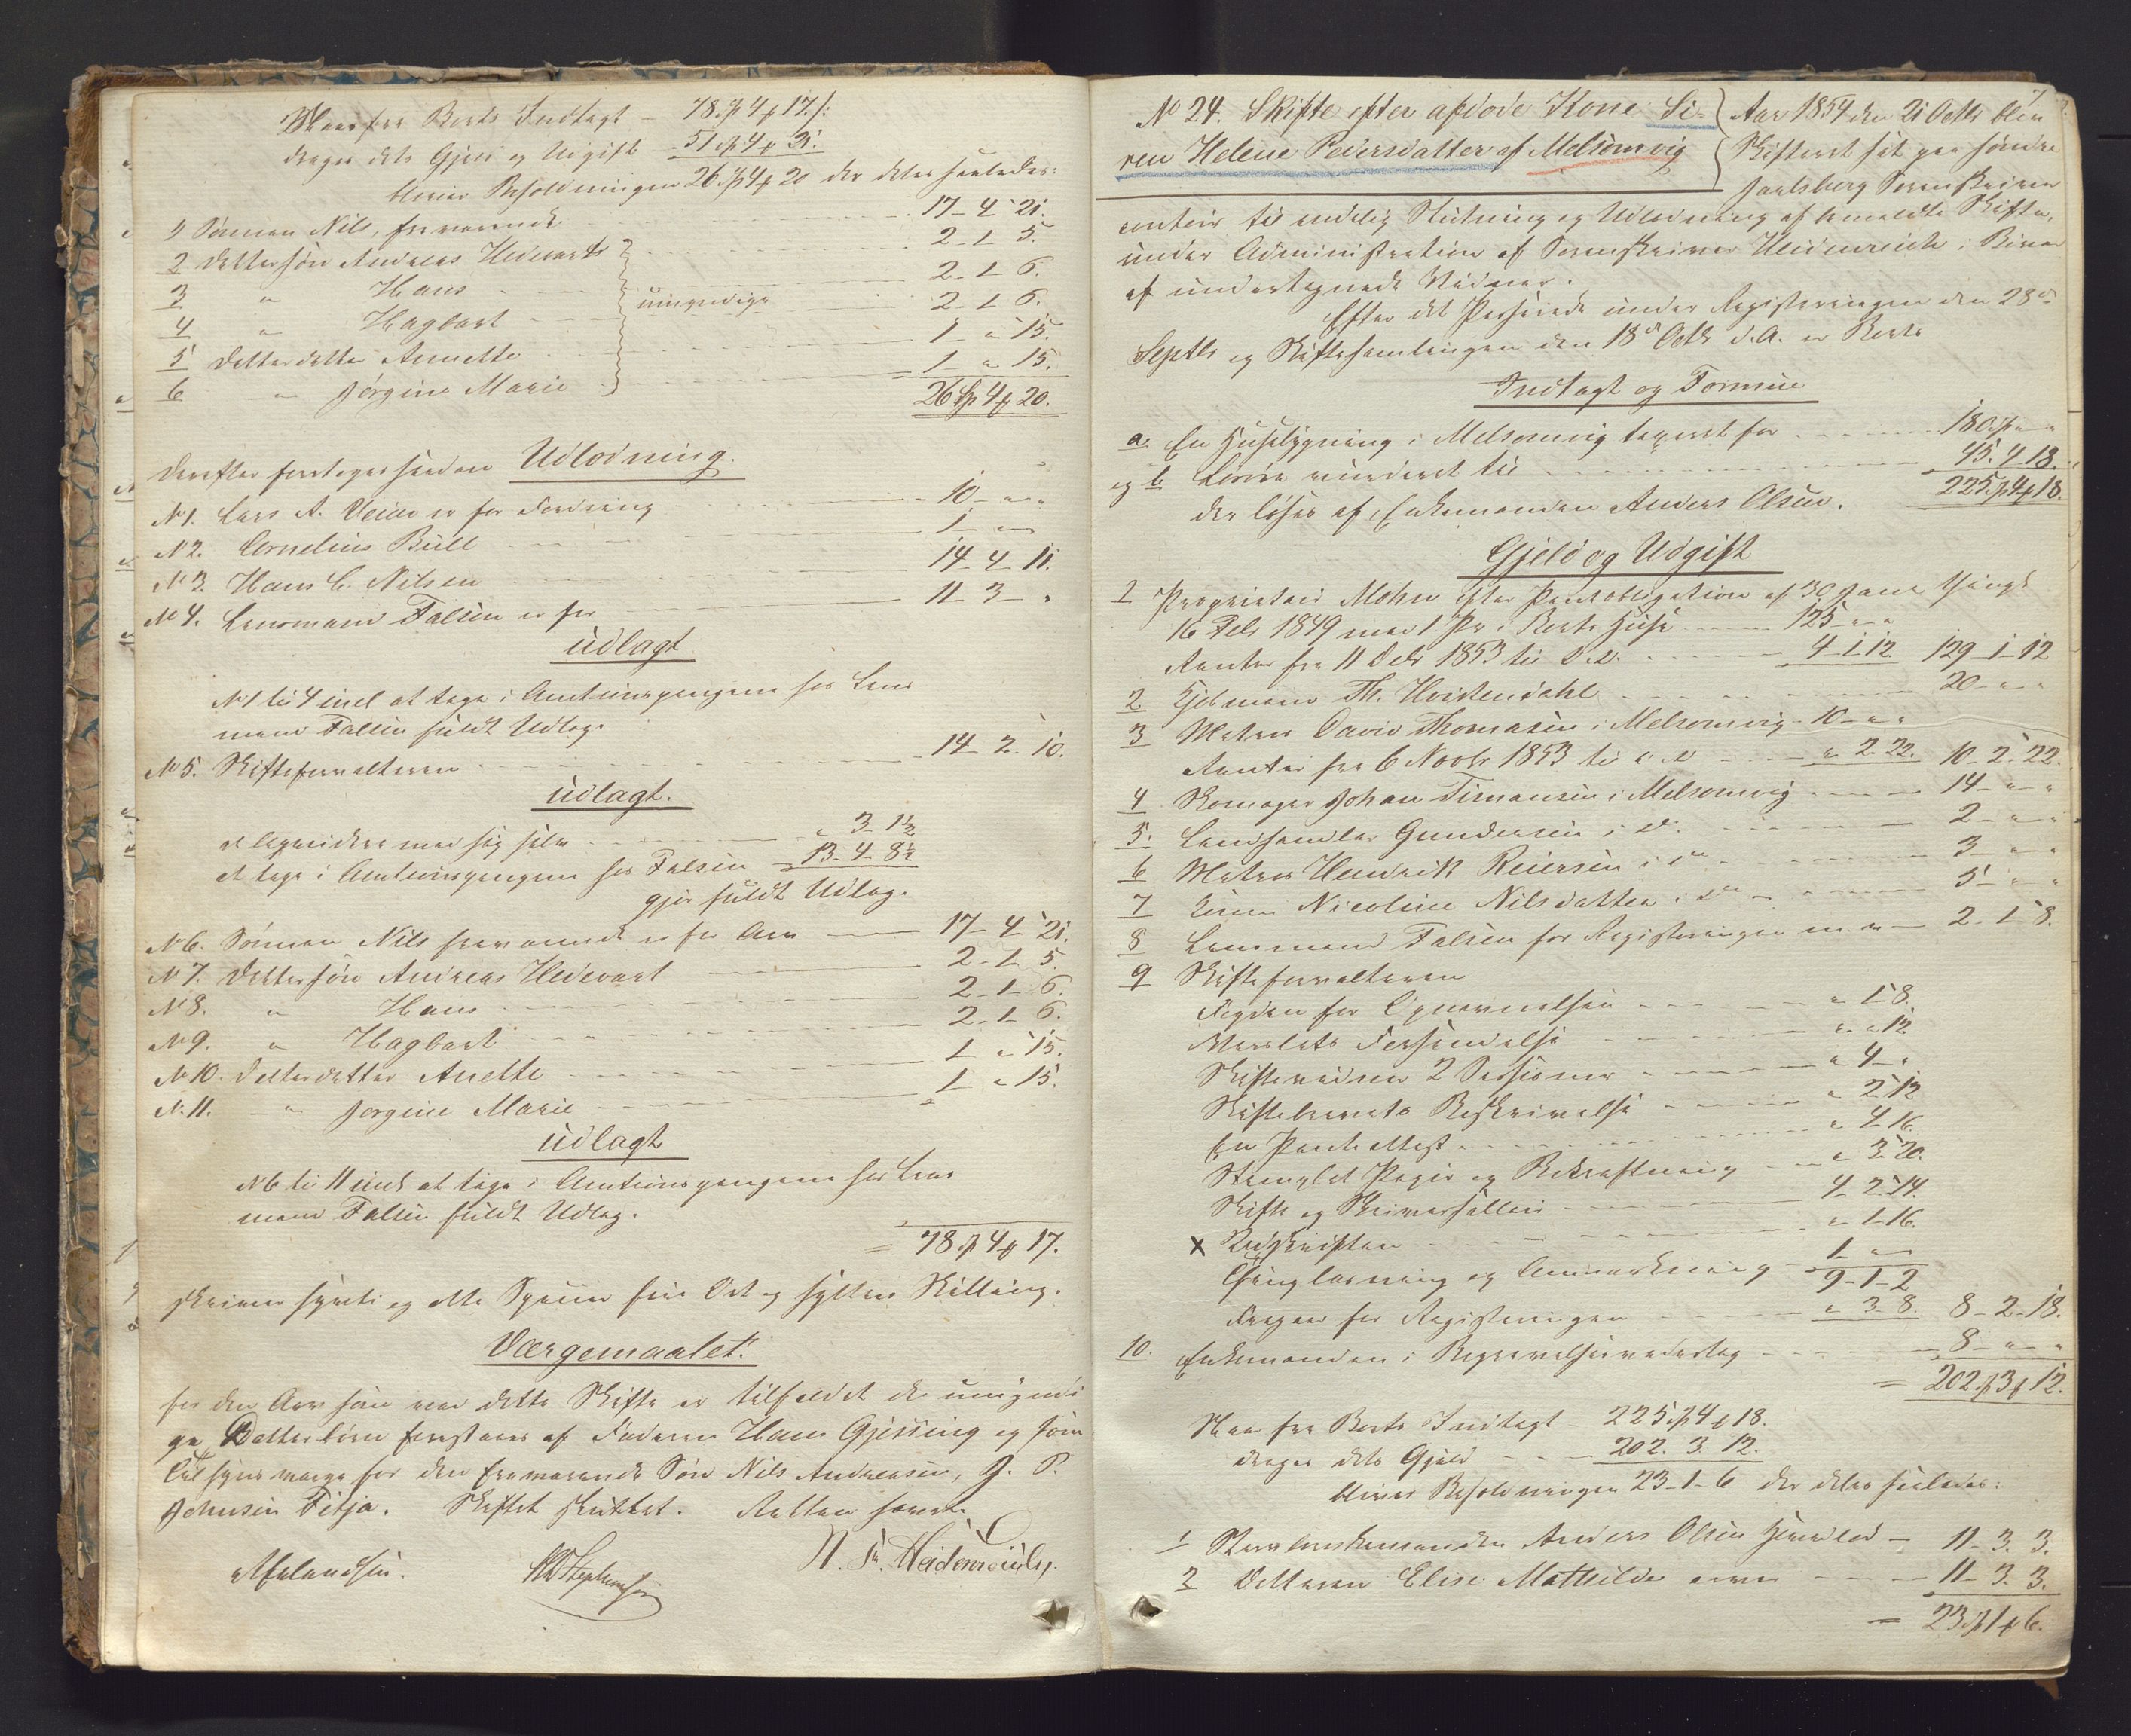 Naar fra Boets Indtægt – 78 Sp 4 ₰ 17 s:
drages dets Gjeld og Udgift – 51 Sp 4 ₰ 21:
bliver Beholdningen 26 Sp 4 ₰ 20 der deles saaledes:
1 Sønnen Nils, fraværende 17 – 4 – 21.
2 Dattersøn Andreas Hedevart 2 – 1 – 5.
3 " Hans 2 – 1 – 6.
4 " Hagbart umyndige 2 – 1 – 6.
5 Datterdatter Annette 1 – " 15.
6 " Jørgine Marie 1 – " 15.
26 Sp 4 ₰ 20.
Derefter foretoges saadan Udlodning.
N 1. Lars A. Veier er for Fordring 10 – " – "
N 2. Cornelius Bull 1 – " –
N 3. Hans C. Nilsen 14 – 4 – 11.
N 4. Lensmand Falsen er for 11 – 3 – "
udlagt
N 1 til 4 incl at tage i Auctionspengene hos Lens
mand Falsen fuldt Udlæg.
N 5. Skifteforvalteren 14 – 2 – 10.
udlagt.
at liqvidere med sig selv " 3 – 1½
at tage i Auctionspengene hos Falsen 13 – 4 – 8½
gjør fuldt Udlæg.
N 6. Sønnen Nils fraværende er for Arv 17 – 4 – 21.
N 7. Dattersøn Andreas Hedevart 2 – 1 – 5.
N 8. " Hans 2 – 1 – 6.
N 9. " Hagbart 2 – 1 – 6.
N 10. Datterdatter Anette 1 – " 15.
N. 11. – " Jørgine Marie 1 – " 15.
udlagt
N 6 til 11 incl at tage i Auctionspengene hos Lens
mand Falsen fuldt Udlæg.
= 78 Sp 4 ₰ 17.
skriver syvti og otte Specier fire Ort og sytten Skilling.
Værgemaalet:
for den Arv som ved dette Skifte er tilfaldet de umyndi
ge Datterbørn forestaaes af Faderen Hans Gjessing og som
Tilsynsværge for den fraværende Søn Nils Andreasen, J. P.
Johnsen Fitja. Skiftet sluttet. Retten hævet.
N. S. Heidenreich.
No 24. Skifte efter afdøde Kone Si-
ren Helene Pedersdatter af Melsomvig
Aar 1854 den 21 Octbr blev
Skifteret sat paa søndre
Jarlsberg Sorenskriver
contoir til endelig Slutning og Udlodning af anmeldte Skifte,
under Administration af Sorenskriver Heidenreich i Bivær
af undertegnede Vidner.
Efter det Passerede under Registreringen den 28de
Septbr og Skiftesamlingen den 18de Octbr d. A. er Boets
Indtægt og Formue
a. En Huusbygning i Melsomvig taxeret for 180 Sp " – "
og b Løsøre vurderet til 45. 4. 18.
der løses af Enkemanden Anders Olsen. 225 Sp 4 ₰ 18.
Gjeld og Udgift
1 Proprietair Møhn efter Pantobligation af 30 Janr thingl
16 Febr 1849 med 1 Pr i Boets Huse 125 – " –
Renter fra 11 Decbr 1853 til d. d. 4 – 1 – 12 129 – 1 – 12
2 Kjøbmand Th. Hvistendahl 20 – " – "
3 Matros David Thomasen i Melsomvig – 10 – " – "
Renter fra 6 Novbr 1853 til d. d " 2 – 22. 10 – 2 – 22.
4 Skomager Johan Simonsen i Melsomvig 14 – " – "
5. Landhandler Gundersen i do 2 – " – "
6 Matros Hendrik Reiersen i do 3 – " – "
7 Enken Nicoline Nilsdatter i do 5 – " – "
8 Lensmand Falsen for Registreringen m. m – 2 – 1 – 8.
9 Skifteforvalteren
Fogden for Opnævnelsen " 1 – 8.
Skiftevidner 2 Sessioner " 4 – "
Skiftebrevets Beskrivelse " 2 – 12
En Panteattest " 4 – 16
Stemplet Papir og Bekræftning " 3 – 20.
Skifte og Skriversallair 4 – 2 – 14.
x " 1 – 16.
Thinglæsning og Anmærkning 1 – " –
9 – 1 – 2
Fragaar for Registreringen " 3 – 8. 8 – 2 – 18.
10. Enkemanden i Begravelsesvederlag 8 – " – "
= 202 Sp 3 ₰ 12.
Naar fra Boets Indtægt 225 Sp 4 ₰ 18.
drages dets Gjeld 202. 3. 12.
bliver Beholdningen 23 – 1 – 6 der deles saaledes:
1 Anders Olsen Hovedlod – 11 – 3. 3.
2 Datteren Elise Mathilde arver 11 – 3. 3.
= 23 Sp 1 ₰ 6.